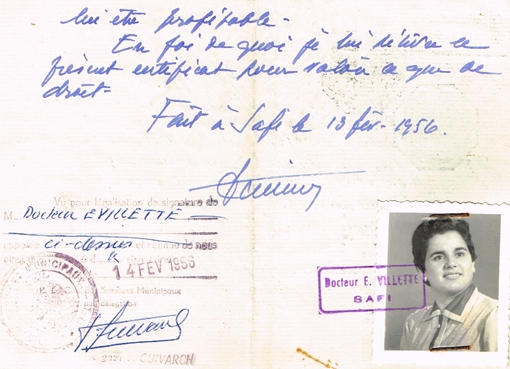 lui être profitable.
En foi de quoi je lui délivre ce
présent certificat pour valoir ce que de
droit.
Fait à Safi le 13 fév. 1956.
Vu pour légalisation de signature de
M. Docteur E VILLETTE
apposée ci-dessus et comme de nous
14 FEV 1956
MUNICIPAUX
Services Municipaux
GUIVARCH
Docteur E. VILLETTE
SAFI